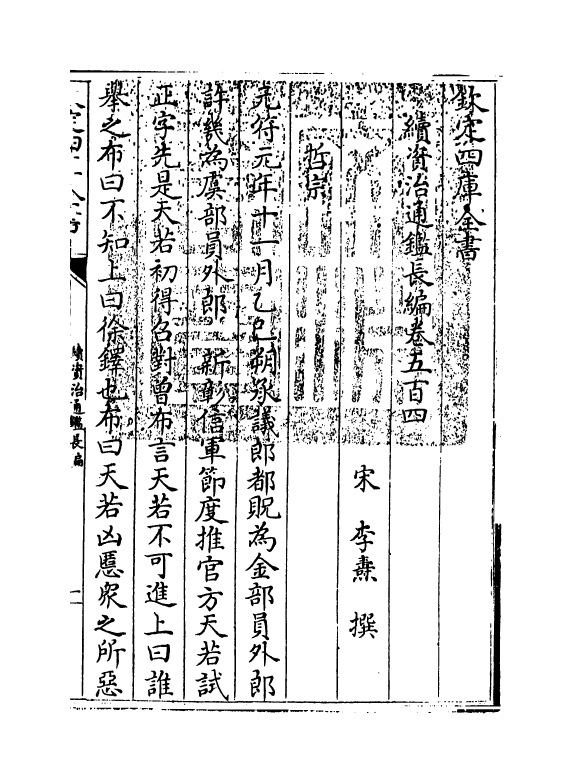 欽定四庫全書
續資治通鑑長編卷五百四
宋 李燾 撰
哲宗
元符元年十一月乙巳朔承議郎都貺為金部員外郎
許幾為虞部員外郎 新彰信軍節度推官方天若試
正字先是天若初得召對曾布言天若不可進上曰誰
舉之布曰不知上曰徐鐸也布曰天若凶慝衆之所惡
續資治通鑑長編
一